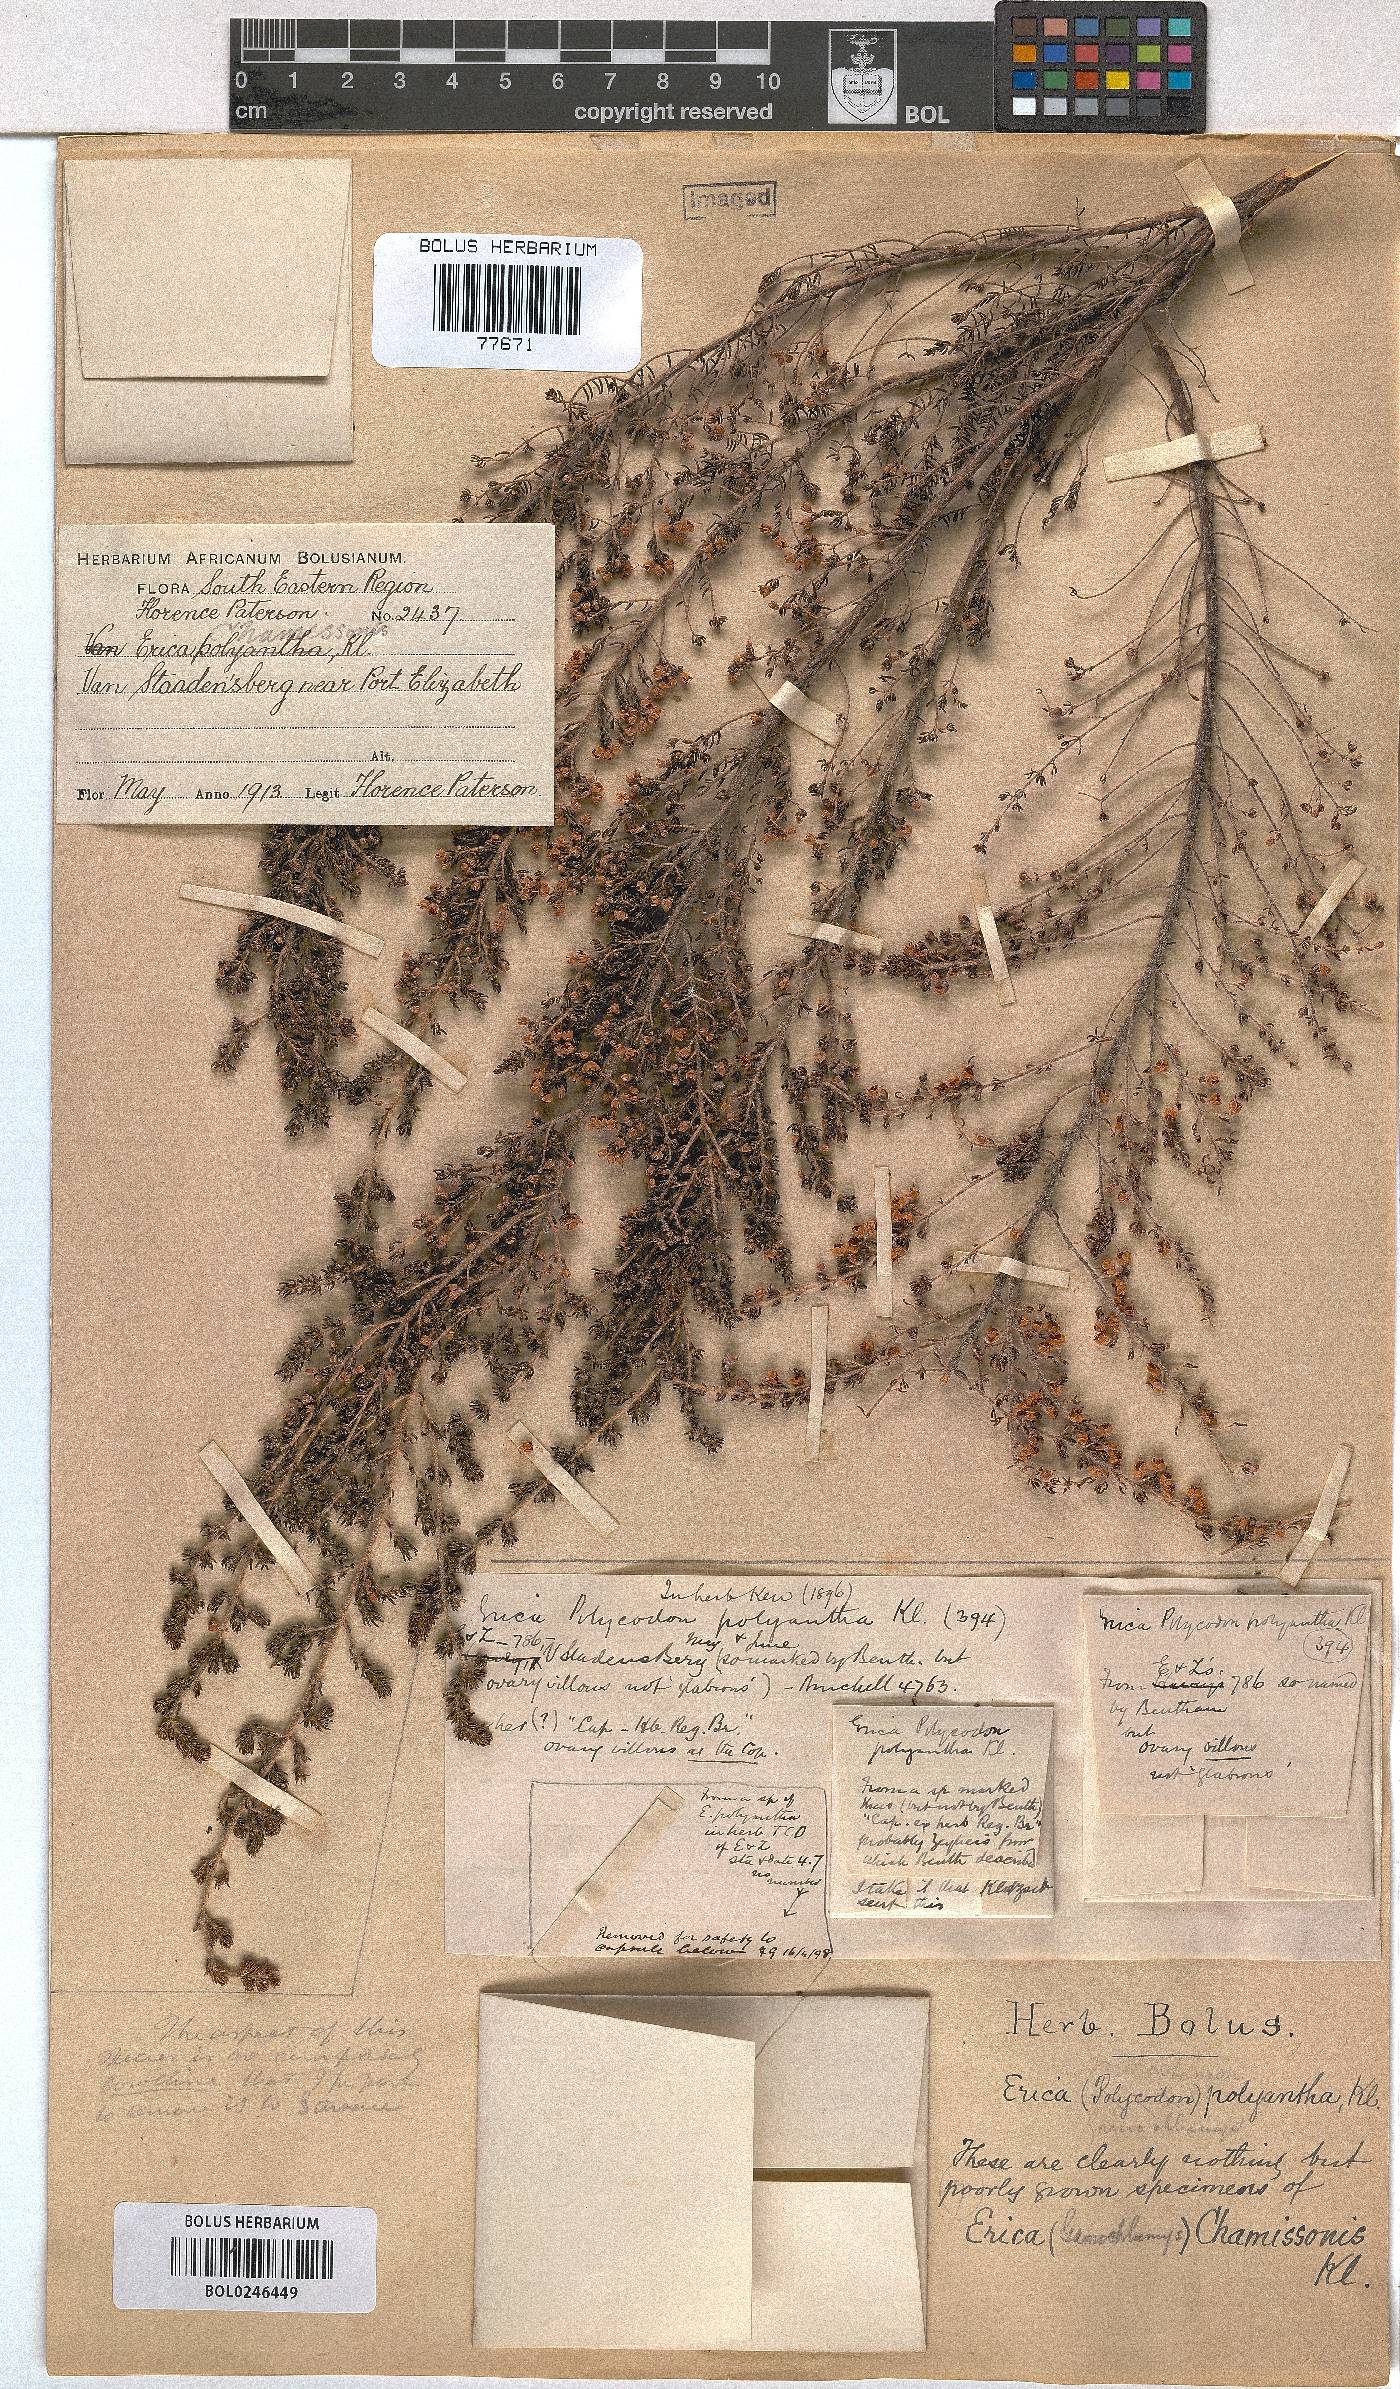 0 1 2 3 4 5 6 7 8 9 10
cm copyright reserved BOL
Imaged
BOLUS HERBARIUM
77671
HERBARIUM AFRICANUM BOLUSIANUM.
FLORA South Eastern Region
Florence Paterson. No. 2437
Chamissonis
Van Erica polyantha, Kl.
Van Staaden'sberg near Port Elizabeth
Alt.
Flor May Anno 1913 Legit Florence Paterson
In herb Kew (1896)
Erica Polycodon polyantha Kl. (394)
E & Z - 786,
May & June
V Stadens Berg (so marked by Benth. but
ovary villous not 'glabrous') - Burchell 4763.
(?) "Cap - Hb. Reg. Br."
ovary villous at the top.
From a sp of
E. polyantha
in herb TCD
of E & Z
sta & date 4.7
no
number
Removed for safety to
capsule below 16/4/98
Erica Polycodon
polyantha Kl.
From a sp marked
(but not by Benth)
"Cap. ex herb Reg. Br"
probably Zeyher's from
which Benth described
I take it that Klotzsch
sent this
Erica Polycodon polyantha Kl
(394)
E & Z's.
From 786 so named
by Bentham
but
ovary villous
not 'glabrous'
Herb. Bolus.
Erica (Polycodon) polyantha, Kl.
These are clearly nothing but
poorly grown specimens of
Erica (Gamochlamys) Chamissonis
Kl.
The aspect of this
species is so
that I
to
BOLUS HERBARIUM
BOL0246449